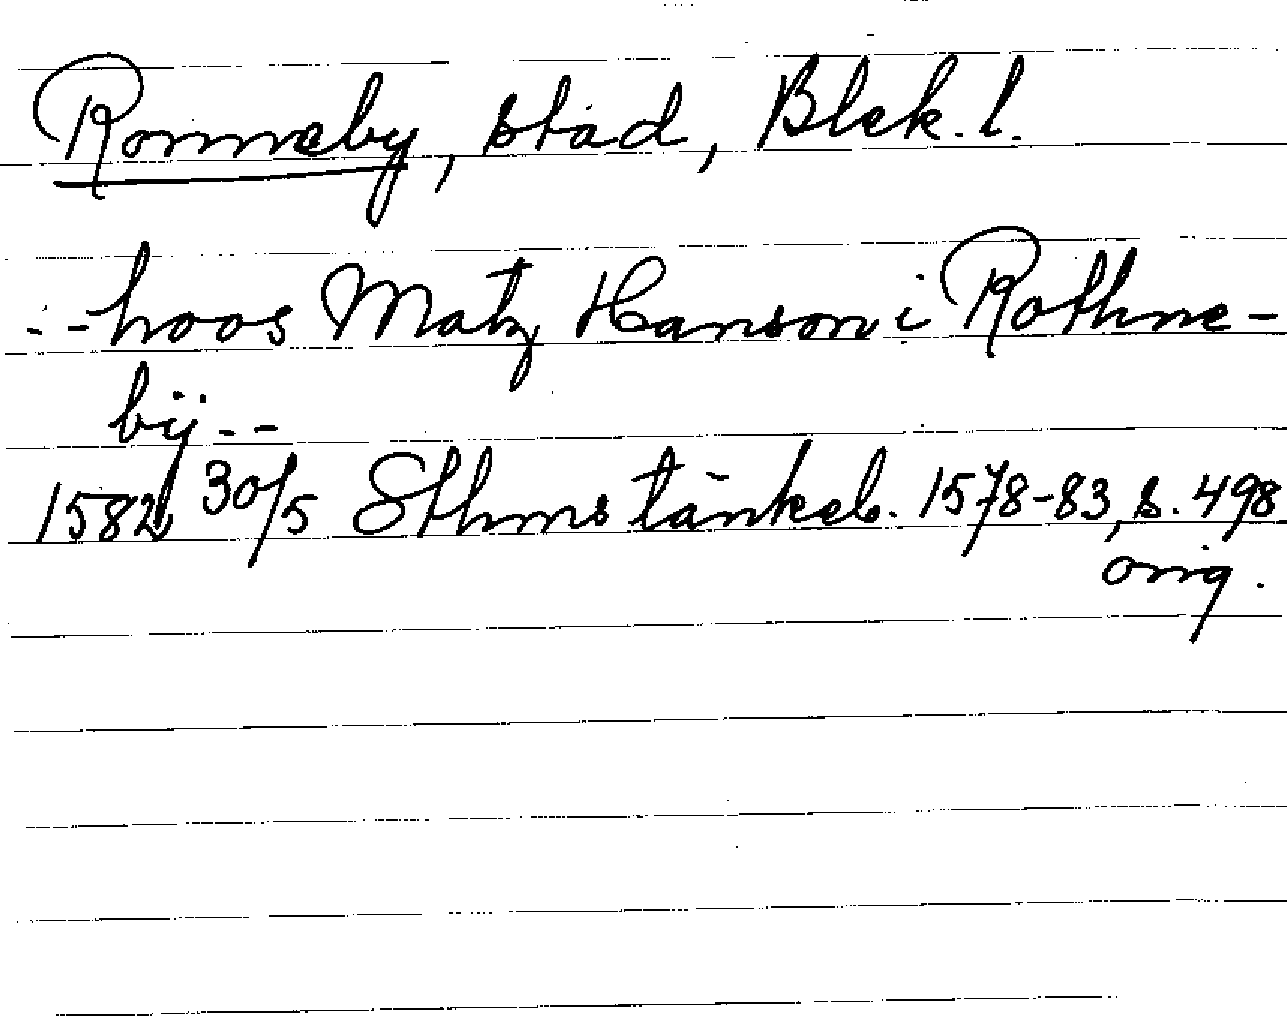 Ronneby, stad, Blek. l.
- - hoos Matz Hanson i Rothne-
bÿ - -
1582 30/5 Sthms tänkeb. 1578-83, s. 498
orig.